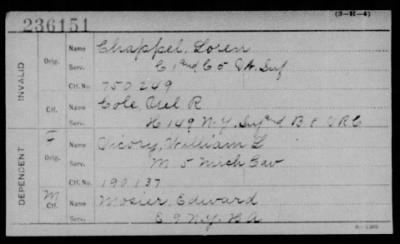 (3-H-4)
236151
INVALID
Orig.
Name Chappel, Loren
Serv. C 1st & C 5 Inf
Ctf. No. 750249
Ctf.
Name Cole R
Serv. H 149 N.Y. Inf & B 1 VRC
DEPENDENT
F
Orig.
Name Vicory, William L
Serv. M 5 Mich Cav
Ctf. No. 190137
M
Ctf.
Name Mosier, Edward
Serv. E 9 N.Y. H A